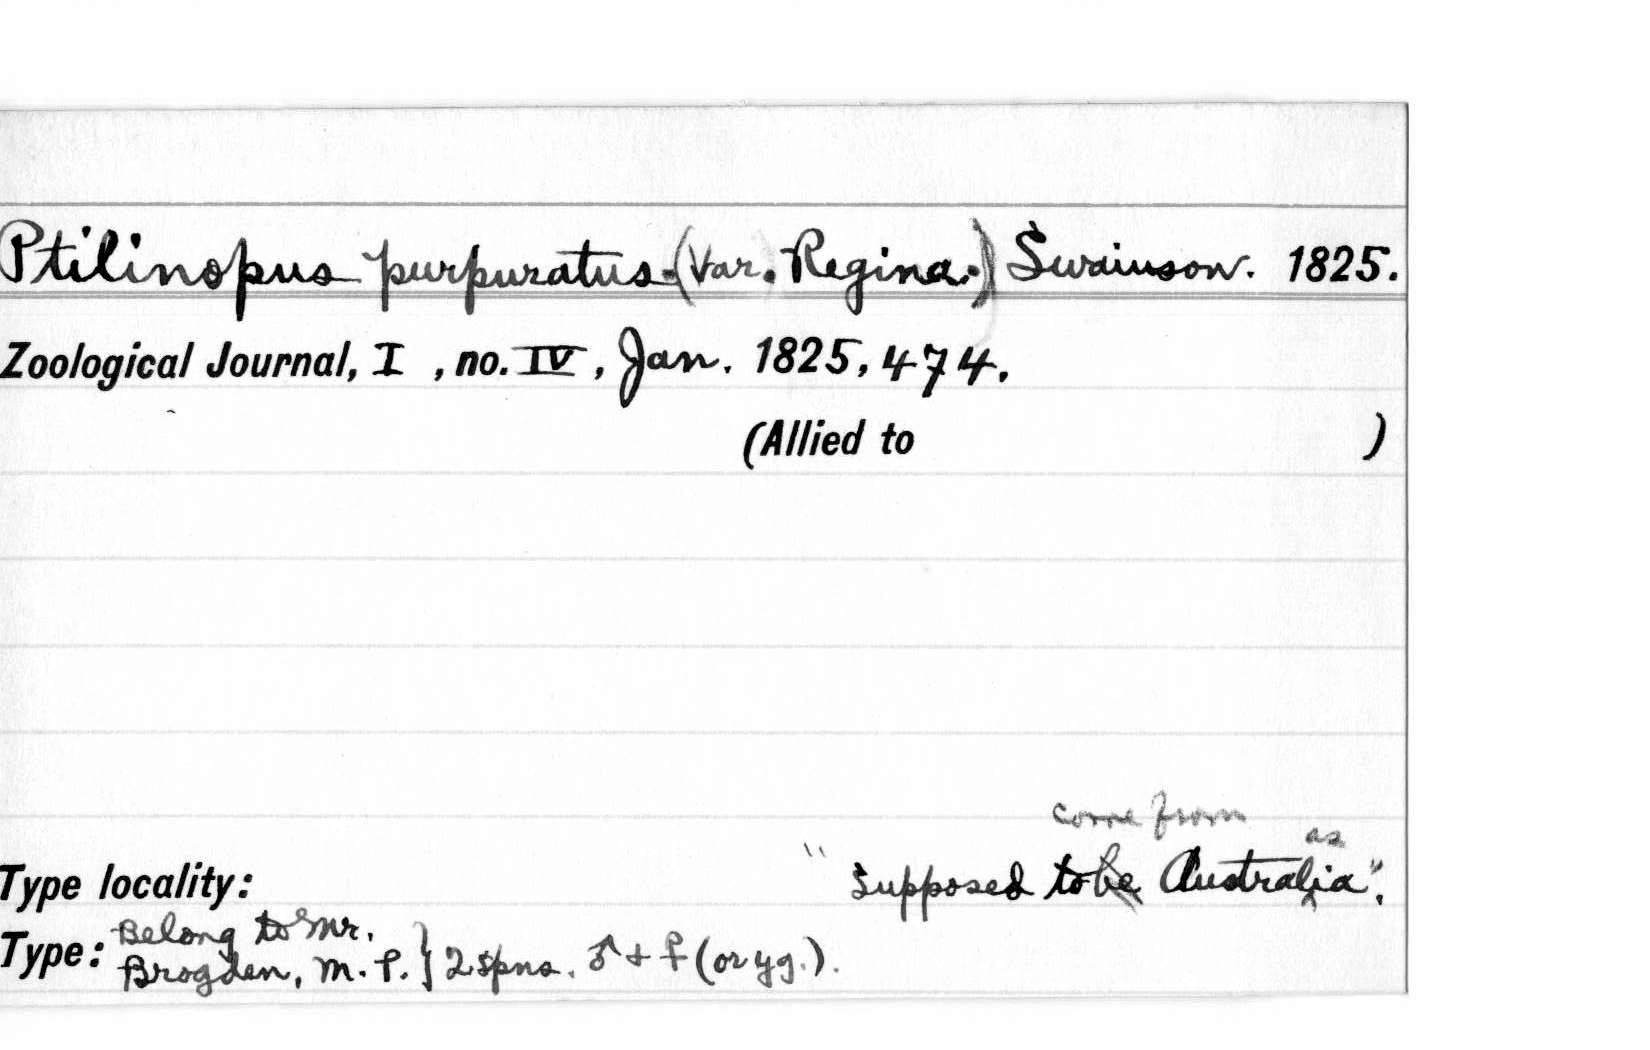 Ptilinopus purpuratus. (Var. Regina.) Swainson. 1825.
Zoological Journal, I , no. IV , Jan. 1825, 474.
(Allied to )
come from
as
Type locality: " Supposed to be Australia".
Belong to Mr.
Type: Brogden, M. P. } 2 spns. ♂ + ♀ (or yg.).